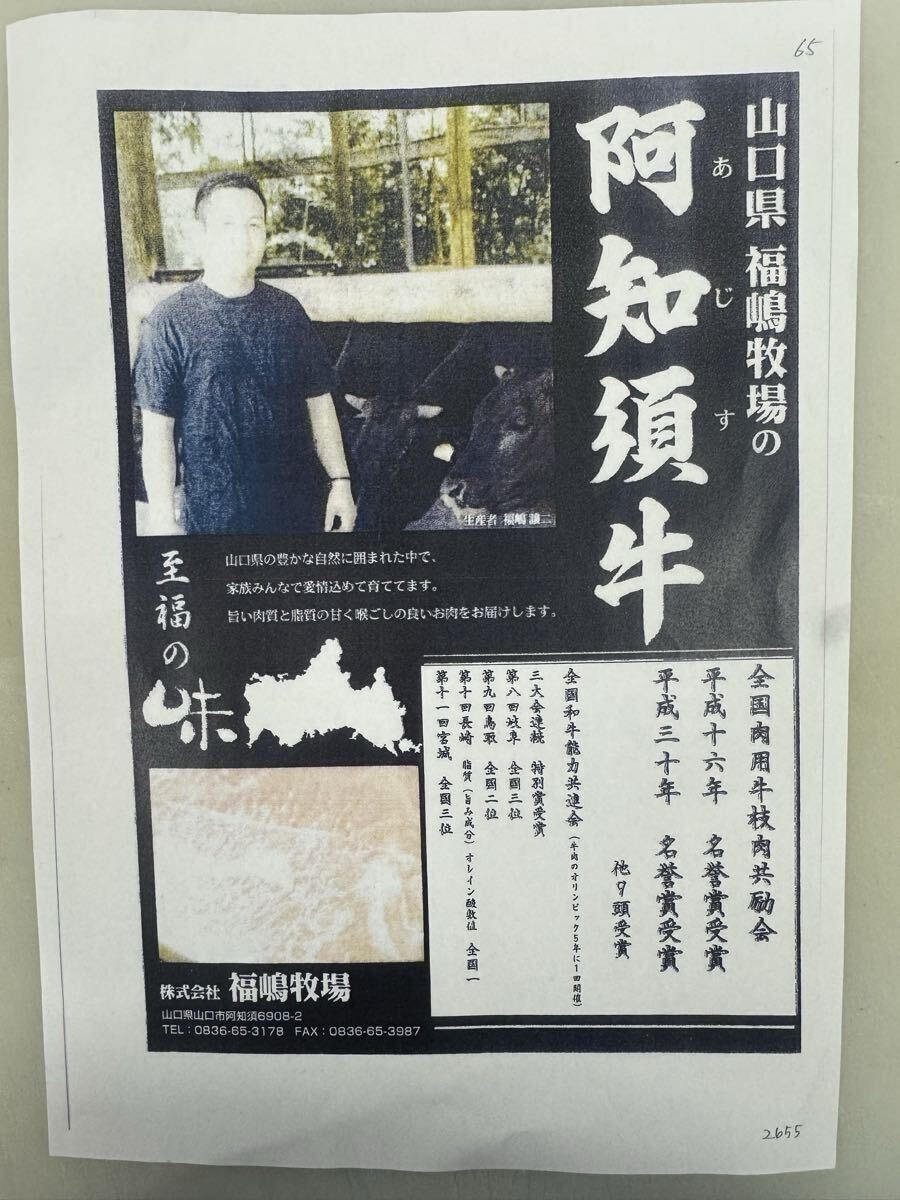 65
山口県 福嶋牧場の
阿知須牛
あじす
生産者 福嶋 譲二
山口県の豊かな自然に囲まれた中で、
家族みんなで愛情込めて育ててます。
旨い肉質と脂質の甘く喉ごしの良いお肉をお届けします。
至福の味
全国肉用牛枝肉共励会
平成十六年 名誉賞受賞
平成三十年 名誉賞受賞
他9頭受賞
全国和牛能力共進会(牛肉のオリンピック5年に1回開催)
三大会連続 特別賞受賞
第八回岐阜 全国三位
第九回鳥取 全国二位
第十回長崎 脂質(旨み成分)オレイン酸数値 全国一
第十一回宮城 全国三位
株式会社 福嶋牧場
山口県山口市阿知須6908-2
TEL:0836-65-3178 FAX:0836-65-3987
2655